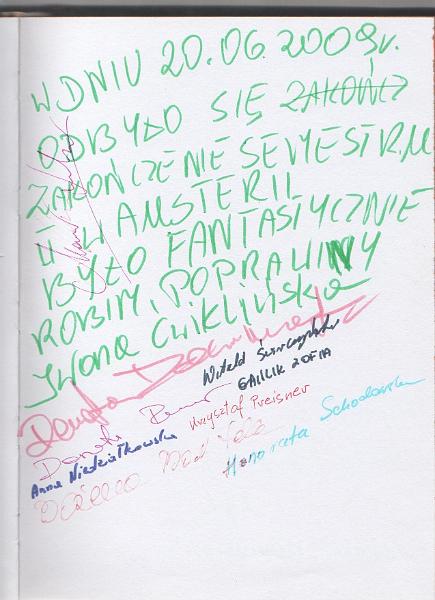 W DNIU 20.06.2009r.
ODBYŁO SIĘ ZAKOŃCZ
ZAKOŃCZENIE SEMESTRU
U AMSTERIL
BYŁO FANTASTYCZNIE
ROBIM, POPRAWINY
Iwona Ćwiklińska
Witold
GALLIK ZOFIA
Dorota
Krzysztof Preisner
Anna Niedziałkowska
Honorata Sadowska